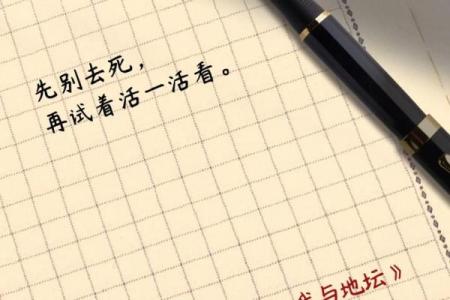 先别去死，
再试着活一活看。
与地坛》